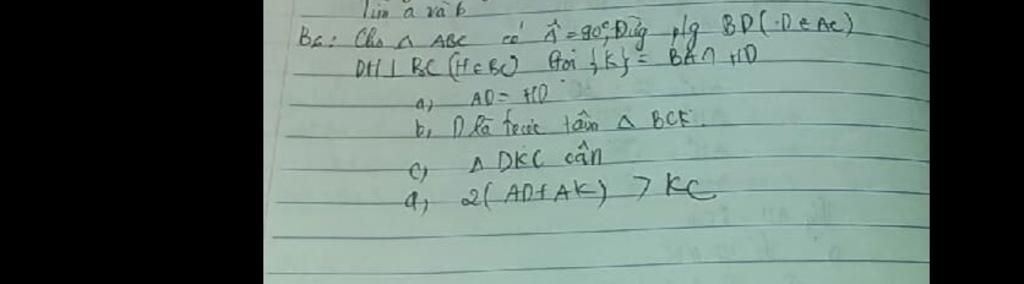 Tìm a và b
B6: Cho △ ABC có Â = 90°. Đường p/g BD (D ∈ AC)
DH ⊥ BC (H ∈ BC) Gọi {K} = BA ∩ HD
a, AD = HD
b, D là trực tâm △ BCK
c, △ DKC cân
d, 2(AD + AK) > KC